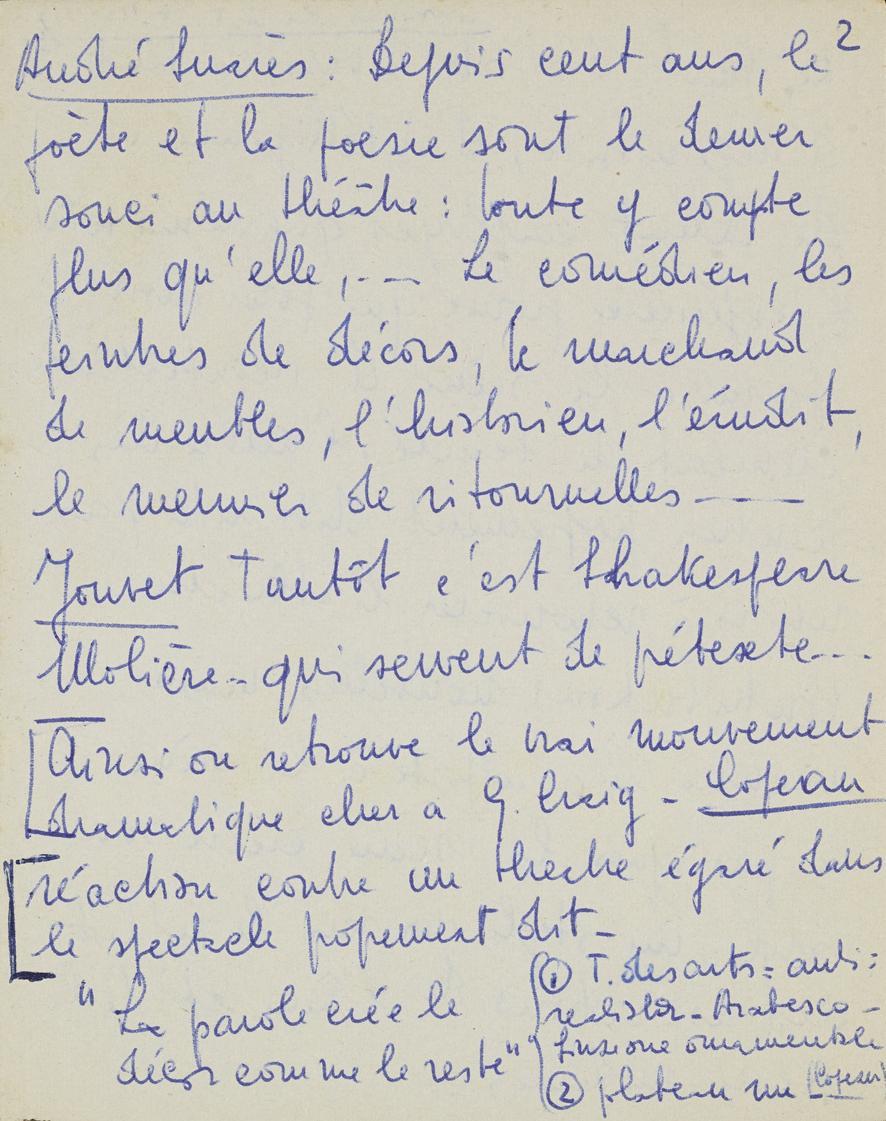 2
André Suarès : Depuis cent ans, le
poète et la poesie sont le dernier
souci au théâtre : toute y compte
plus qu'elle, -- Le comédien, les
peintres de décors, le marchand
de meubles, l'historien, l'érudit,
le meunier de ritournelles ---
Jouvet Tantôt c'est Shakespeare
Molière -- qui servent de pétexte...
Ainsi on retrouve le vrai mouvement
dramatique cher a G. Craig - Copeau
réaction contre un theatre égaré dans
le spectacle propement dit -
" La parole crée le
décor comme le reste "
① T. des arts = anti:
realista - Arabesco -
finzione ornamentale
② plateau nu (Copeau)